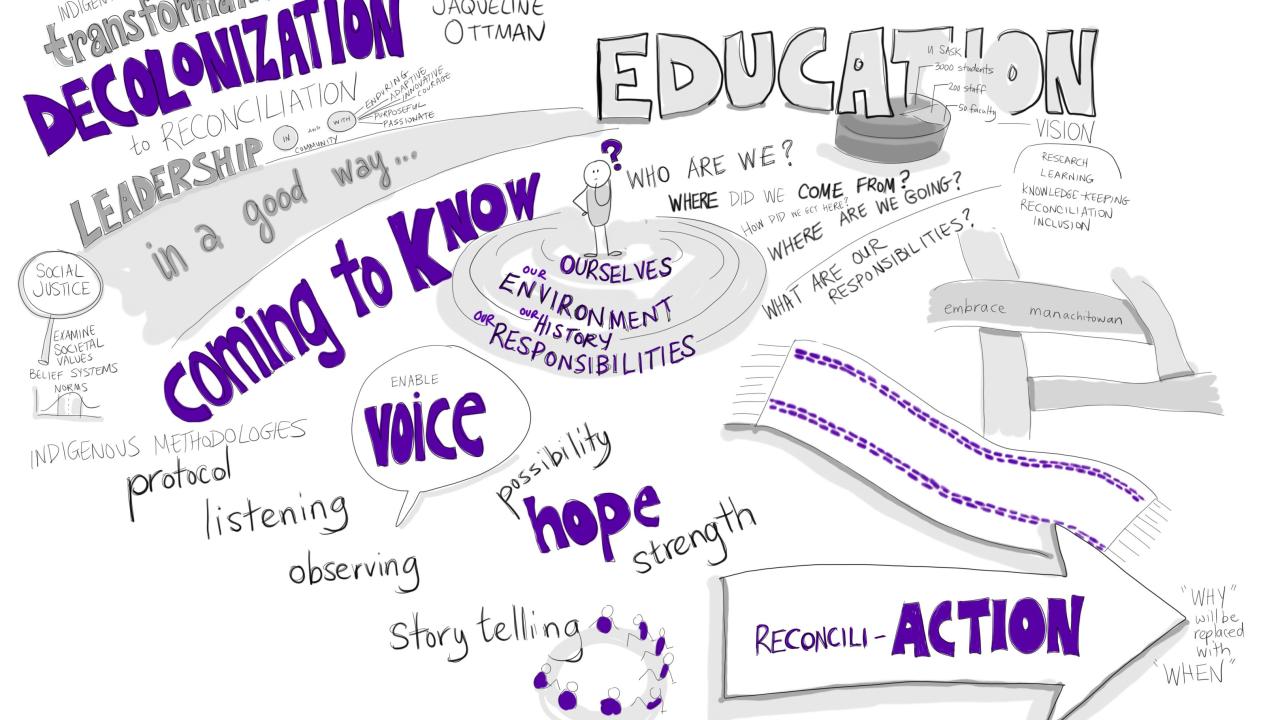 transformati
DECOLONIZATION
to RECONCILIATION
LEADERSHIP
IN AND WITH
COMMUNITY
ENDURING
ADAPTIVE
INNOVATIVE
COURAGE
PURPOSEFUL
PASSIONATE
in a good way...
JAQUELINE
OTTMAN
EDUCATION
U SASK
3000 students
200 staff
50 faculty
VISION
RESEARCH
LEARNING
KNOWLEDGE-KEEPING
RECONCILIATION
INCLUSION
coming to KNOW
?
WHO ARE WE?
WHERE DID WE COME FROM?
HOW DID WE GET HERE?
WHERE ARE WE GOING?
WHAT ARE OUR
RESPONSIBILITIES?
OUR OURSELVES
ENVIRONMENT
OUR HISTORY
OUR RESPONSIBILITIES
SOCIAL
JUSTICE
EXAMINE
SOCIETAL
VALUES
BELIEF SYSTEMS
NORMS
embrace manachitowan
ENABLE
VOICE
INDIGENOUS METHODOLOGIES
protocol
listening
observing
story telling
possibility
hope
strength
RECONCILI-ACTION
"WHY"
will be
replaced
with
"WHEN"